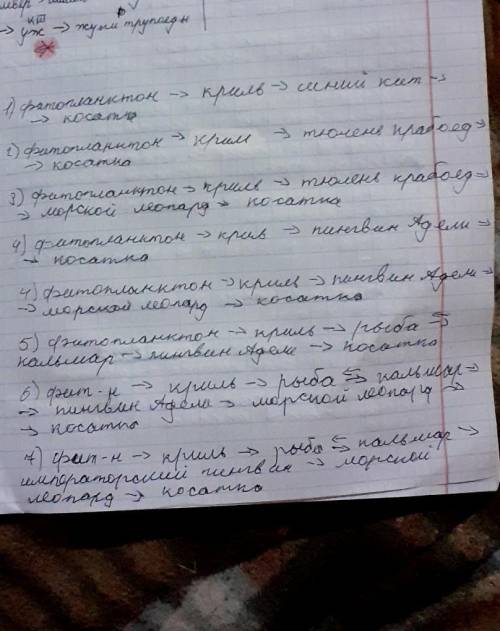 → уж → жуки трупоеды
1) фитопланктон → криль → синий кит →
→ косатка
2) фитопланктон → крил → тюлень крабоед →
→ косатка
3) фитопланктон → криль → тюлень крабоед →
→ морской леопард → косатка
4) фитопланктон → крил → пингвин Адели →
→ косатка
4) фитопланктон → криль → пингвин Адели →
→ морской леопард → косатка
5) фитопланктон → криль → рыба ⇆
кальмар → пингвин Адели → косатка
6) фит-н → криль → рыба ⇆ кальмар →
→ пингвин Адели → морской леопард →
→ косатка
7) фит-н → криль → рыба ⇆ кальмар →
императорский пингвин → морской
леопард → косатка